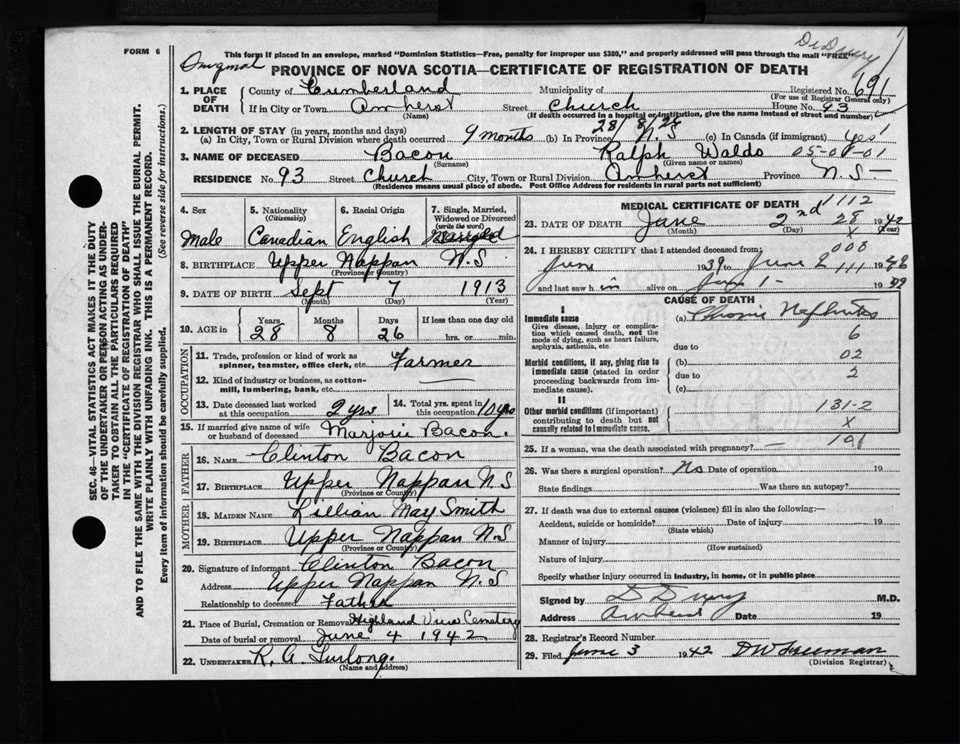 FORM 6
This form if placed in an envelope, marked "Dominion Statistics—Free, penalty for improper use $300," and properly addressed will pass through the mail "FREE"
Dr Drury
Original
PROVINCE OF NOVA SCOTIA—CERTIFICATE OF REGISTRATION OF DEATH
1. PLACE OF DEATH
County of Cumberland Municipality of Registered No. 691
(For use of Registrar General only)
If in City or Town Amherst Street Church House No. 93
(Name) (If death occurred in a hospital or institution, give the name instead of street and number)
2. LENGTH OF STAY (in years, months and days) 28/8/26
(a) In City, Town or Rural Division where death occurred 9 months (b) In Province N.S (c) In Canada (if immigrant) yes
3. NAME OF DECEASED Bacon Ralph Waldo 05-01-01
(Surname) (Given name or names)
RESIDENCE No. 93 Street Church City, Town or Rural Division Amherst Province N.S—
(Residence means usual place of abode. Post Office Address for residents in rural parts not sufficient)
4. Sex
Male
5. Nationality
(Citizenship)
Canadian
6. Racial Origin
English
7. Single, Married, Widowed or Divorced
(write the word)
Married
8. BIRTHPLACE Upper Nappan N.S
(Province or Country)
9. DATE OF BIRTH Sept 7 1913
(Month) (Day) (Year)
10. AGE in
Years Months Days If less than one day old
28 8 26 hrs. or min.
OCCUPATION
11. Trade, profession or kind of work as spinner, teamster, office clerk, etc. Farmer
12. Kind of industry or business, as cotton-mill, lumbering, bank, etc. —
13. Date deceased last worked at this occupation 2 yrs
14. Total yrs. spent in this occupation 10 yrs
15. If married give name of wife or husband of deceased Marjorie Bacon.
FATHER
16. NAME Clinton Bacon
17. BIRTHPLACE Upper Nappan N.S
(Province or Country)
MOTHER
18. MAIDEN NAME Lillian May Smith
19. BIRTHPLACE Upper Nappan N.S
(Province or Country)
20. Signature of informant Clinton Bacon
Address Upper Nappan N.S
Relationship to deceased Father
21. Place of Burial, Cremation or Removal Highland View Cemetery
Date of burial or removal June 4 1942
22. UNDERTAKER R. A. Furlong.
(Name and address)
MEDICAL CERTIFICATE OF DEATH
1112
23. DATE OF DEATH June 2nd 28 1942
(Month) (Day) X (Year)
24. I HEREBY CERTIFY that I attended deceased from: 000
June 1939 to June 2 111 1942
and last saw him alive on June 1- 1942
CAUSE OF DEATH
I
Immediate cause
Give disease, injury or complication which caused death, not the mode of dying, such as heart failure, asphyxia, asthenia, etc.
(a) Chronic Nephritis
6
due to
Morbid conditions, if any, giving rise to immediate cause (stated in order proceeding backwards from immediate cause).
(b) 02
due to 2
(c)
II
Other morbid conditions (if important) contributing to death but not causally related to immediate cause.
131-2
X
191
25. If a woman, was the death associated with pregnancy? —
26. Was there a surgical operation? No Date of operation 19
State findings Was there an autopsy?
27. If death was due to external causes (violence) fill in also the following:—
Accident, suicide or homicide? Date of injury 19
(State which)
Manner of injury
(How sustained)
Nature of injury
Specify whether injury occurred in industry, in home, or in public place
Signed by D Drury M.D.
Address Amherst Date 19
28. Registrar's Record Number
29. Filed June 3 1942 DW Freeman
(Division Registrar)
SEC. 46—VITAL STATISTICS ACT MAKES IT THE DUTY
OF THE UNDERTAKER OR PERSON ACTING AS UNDER-
TAKER TO OBTAIN ALL THE PARTICULARS REQUIRED
IN THE "CERTIFICATE OF REGISTRATION OF DEATH"
AND TO FILE THE SAME WITH THE DIVISION REGISTRAR WHO SHALL ISSUE THE BURIAL PERMIT.
WRITE PLAINLY WITH UNFADING INK. THIS IS A PERMANENT RECORD.
Every item of information should be carefully supplied. (See reverse side for instructions.)